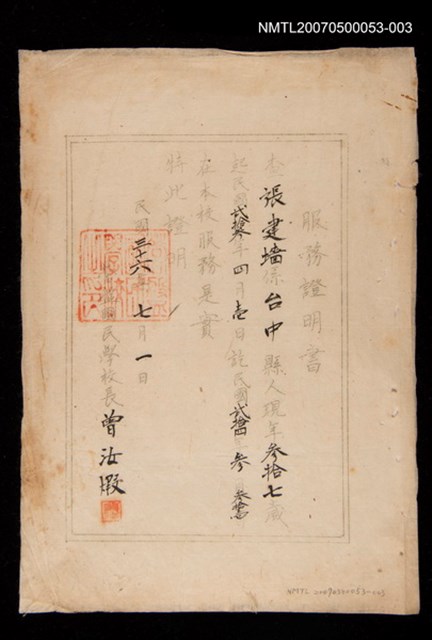 NMTL20070500053-003
服務證明書
查張建墻係台中縣人現年參拾七歲
起民國貳拾年四月壱日訖民國貳拾四年參月參拾
在本校服務是實
特此證明
民國三十六年七月一日
國民學校長曾汝煅
NMTL 20070500053-003